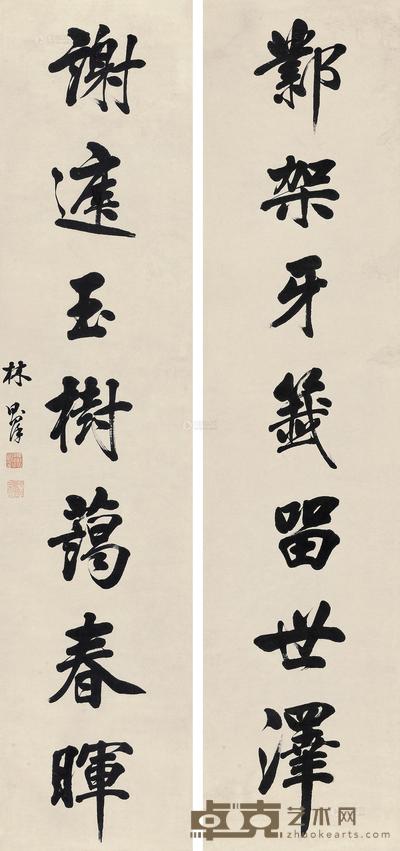 鄴架牙籤留世澤
謝庭玉樹藹春暉
林
卓克艺术网
zhuokearts.com